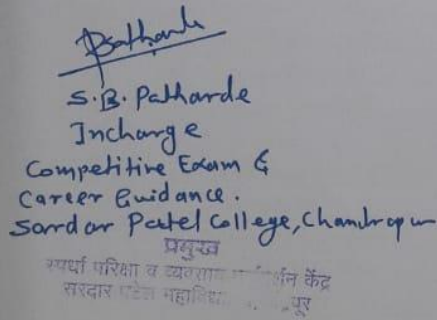 S.B. Patharde
Incharge
Competitive Exam &
Career Guidance.
Sardar Patel College, Chandrapur
प्रमुख
स्पर्धा परिक्षा व केंद्र
सरदार पटेल